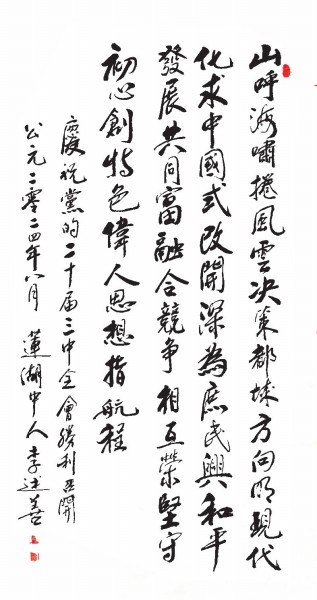 山呼海嘯捲風雲决策都城方向明現代
化求中國式改開深為庶民興和平
發展共同富融合競争相互榮堅守
初心創特色偉人思想指航程
慶祝黨的二十届三中全會勝利召開
公元二零二四年八月 蓮湖中人李述善